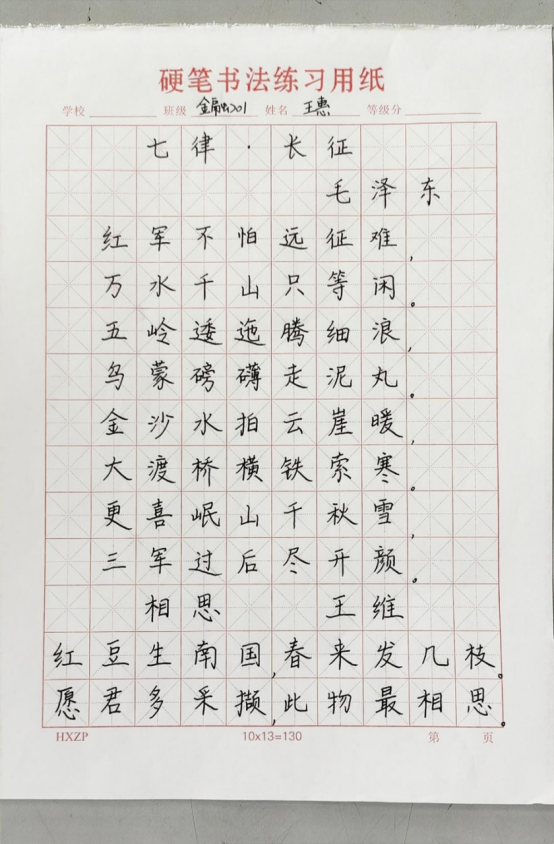 硬笔书法练习用纸
学校 班级 金融2201 姓名 王惠 等级分
七律·长征
毛泽东
红军不怕远征难,
万水千山只等闲。
五岭逶迤腾细浪,
乌蒙磅礴走泥丸。
金沙水拍云崖暖,
大渡桥横铁索寒。
更喜岷山千秋雪,
三军过后尽开颜。
相思 王维
红豆生南国,春来发几枝。
愿君多采撷,此物最相思。
HXZP 10x13=130 第 页